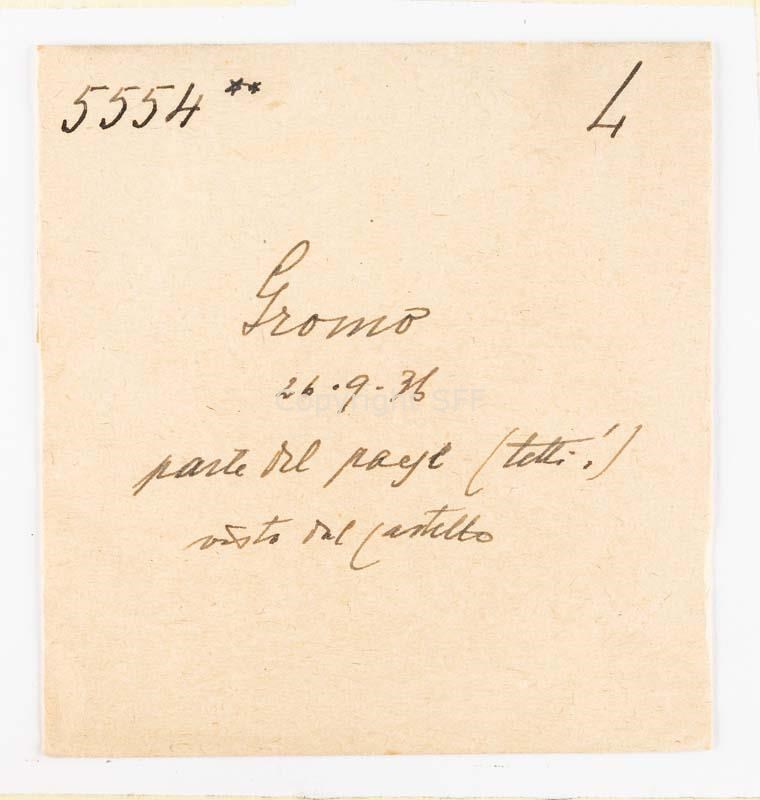 5554 ** L
Gromo
26.9.36
Copyright SFF
parte del paese (tetti!)
visto dal castello